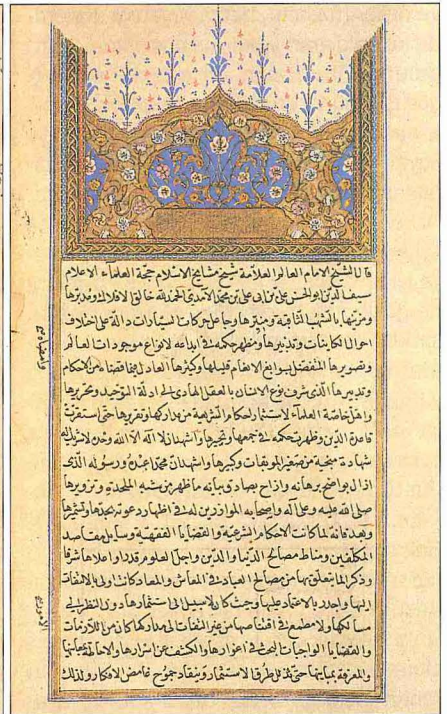 قال الشيخ الامام العالم العلامة شيخ مشايخ الاسلام حجة العلماء الاعلام
سيف الدين ابو الحسن علي بن ابي علي بن محمد الآمدي الحمد لله خالق الافلاك ومديرها
ومزينها بالشهب الثاقبة ومنيرها وجاعل حركات السيارات دالة على اختلاف
احوال الكائنات وتدبيرها ومظهر حكمه في ابداعه لانواع موجودات العالم
وتصويرها المتفضل بسوابغ الانعام قليلها وكثيرها العادل فيما قضاه من الاحكام
وتدبيرها الذي شرف نوع الانسان بالعقل الهادي الى ادلة التوحيد وتحريرها
واهل خاصة العلماء لاستثمار احكام الشريعة من مداركها وتقريرها حتى استقرت
قاعدة الدين وظهرت حكمه في جمعها وتحبيرها واشهد ان لا اله الا الله وحده لا شريك له
شهادة منجية من صغير الموبقات وكبيرها واشهد ان محمدا عبده ورسوله الذي
ازال بواضح برهانه وازاح بصادق بيانه ما ظهر من شبه الملحدين وتزويرها
صلى الله عليه وعلى آله واصحابه الموازرين له في اظهار دعوته بحدها وتشميرها
وبعد فانه لما كانت الاحكام الشرعية والقضايا الفقهية وسايل مقاصد
المكلفين ومناط مصالح الدنيا والدين واجل العلوم قدرا واعلاها شرفا
وذكرا لما يتعلق بها من مصالح العباد في المعاش والمعاد كانت اولى بالالتفات
اليها واجدر بالاعتماد عليها وحيث كان لا سبيل الى استثمارها دون النظر في
مسالكها ولا مطمع في اقتناصها من غير التفات الى مداركها كان من اللازمات
والقضايا الواجبات البحث في اغوارها والكشف عن اسرارها والاحاطة بمعانيها
والمعرفة بمبانيها حتى تذلل طرق الاستثمار وينقاد جموح غامض الافكار ولذلك